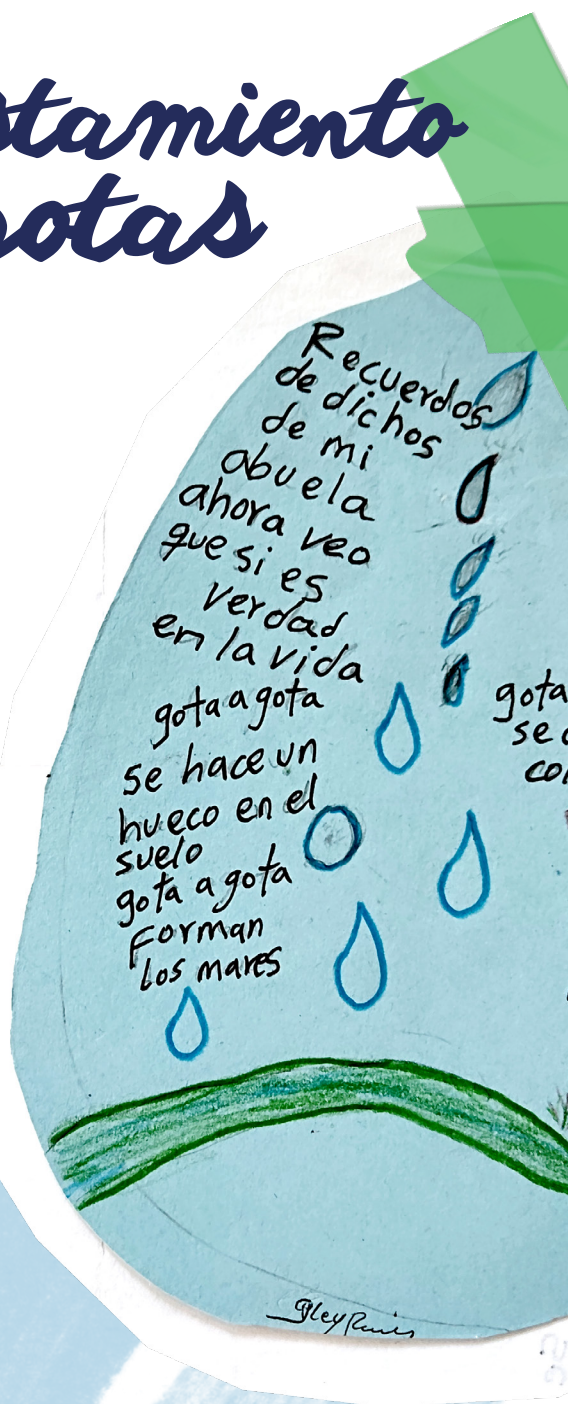 stamiento
otas
Recuerdos
de dichos
de mi
abuela
ahora veo
que si es
verdad
en la vida
gota a gota
se hace un
hueco en el
suelo
gota a gota
Forman
los mares
gota
se